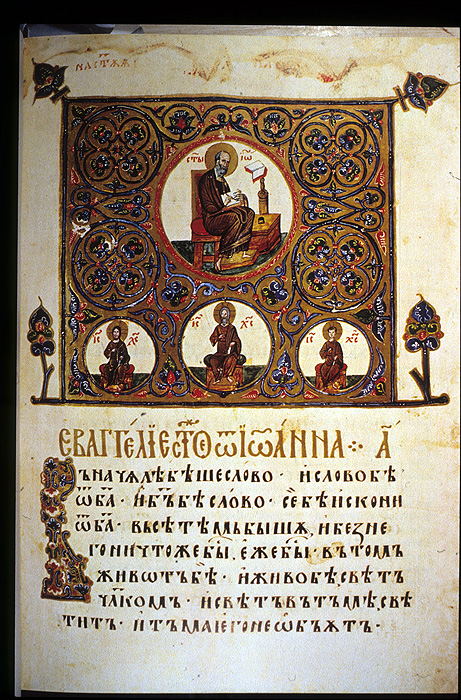 СТЫ ІѠ
ІС ХС
ІС ХС
ІС ХС
ЕВАГГЕЛІЕ СТОЕ ѾІѠАННА А
ВЪНАЧАЛѢБѢШЕСЛОВО · ИСЛОВОБѢ
ѾБА · ИБЪБѢСЛОВО · СЕБѢИСКОНИ
ѾБА · ВЬСѢТѢМЬБЫША, ИБЕЗНЕ
ГОНИЧТОЖЕБЫ . ЕЖЕБЫ · ВЪТОМЪ
ЖИВѠТЪБѢ · ИЖИВОБѢ,СВѢТЪ
ЧЛКОМЪ · ИСВѢТЪВЪТЬМѢ,СВѢ
ТИТЪ · ИТЪМАІЕГОНЕѠБЪЯТЪ ·